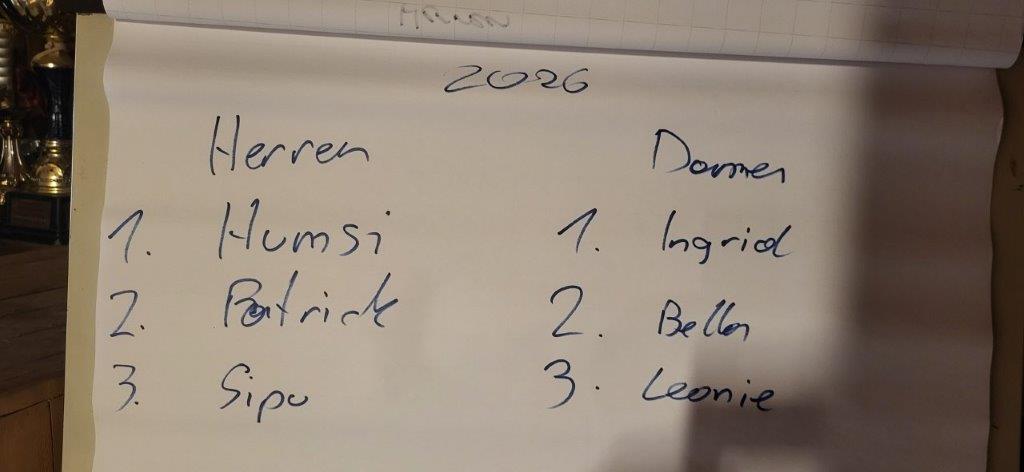 2026
Herren
1. Humsi
2. Patrick
3. Sipu
Damen
1. Ingrid
2. Bella
3. Leonie